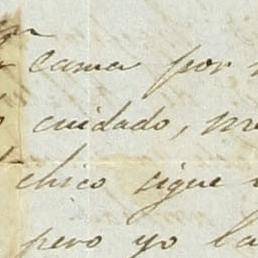 cama por
cuidado,
chico sigue
pero yo la